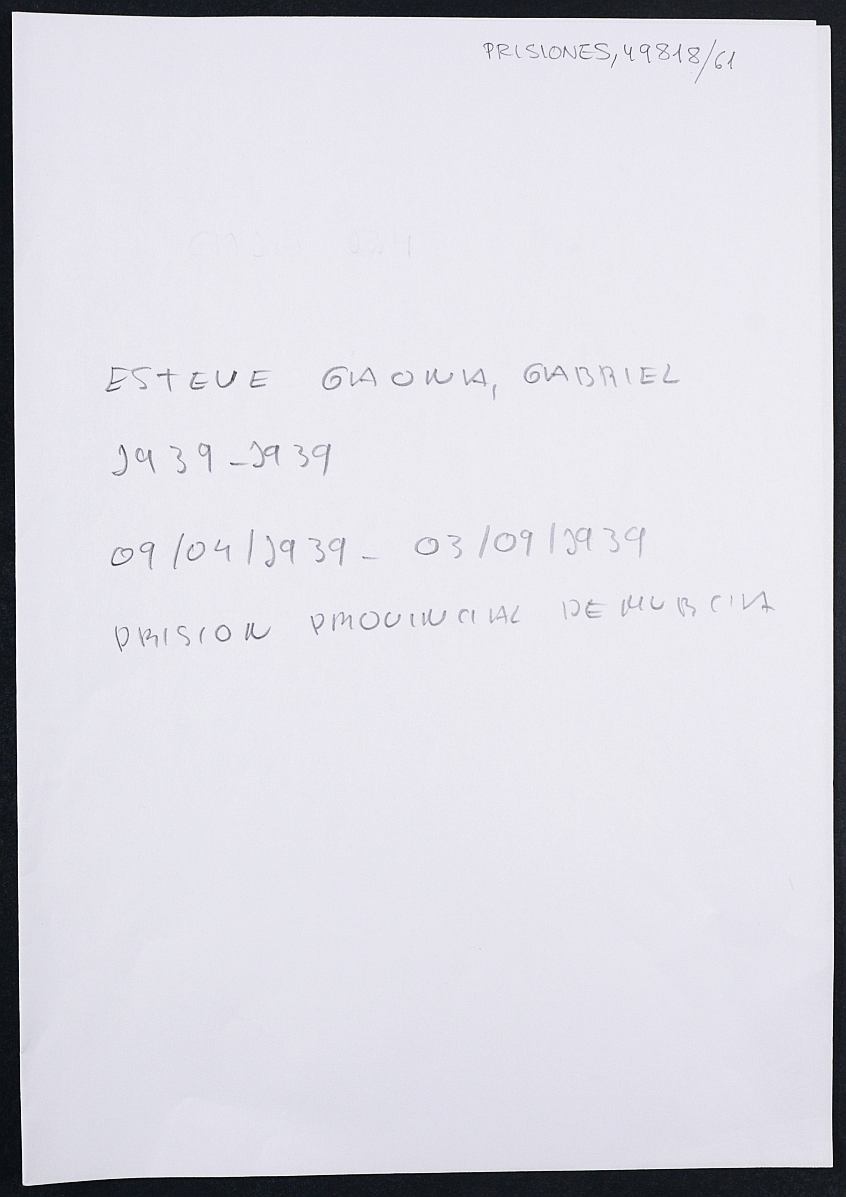 PRISIONES, 49818/61
ESTEVE GAONA, GABRIEL
1939-1939
09/04/1939 - 03/09/1939
PRISION PROVINCIAL DE MURCIA